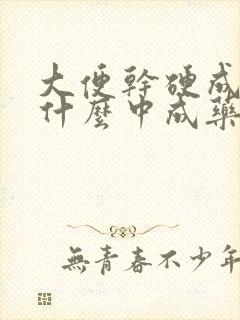 大便幹硬成
什麼中成藥
無青春不少年